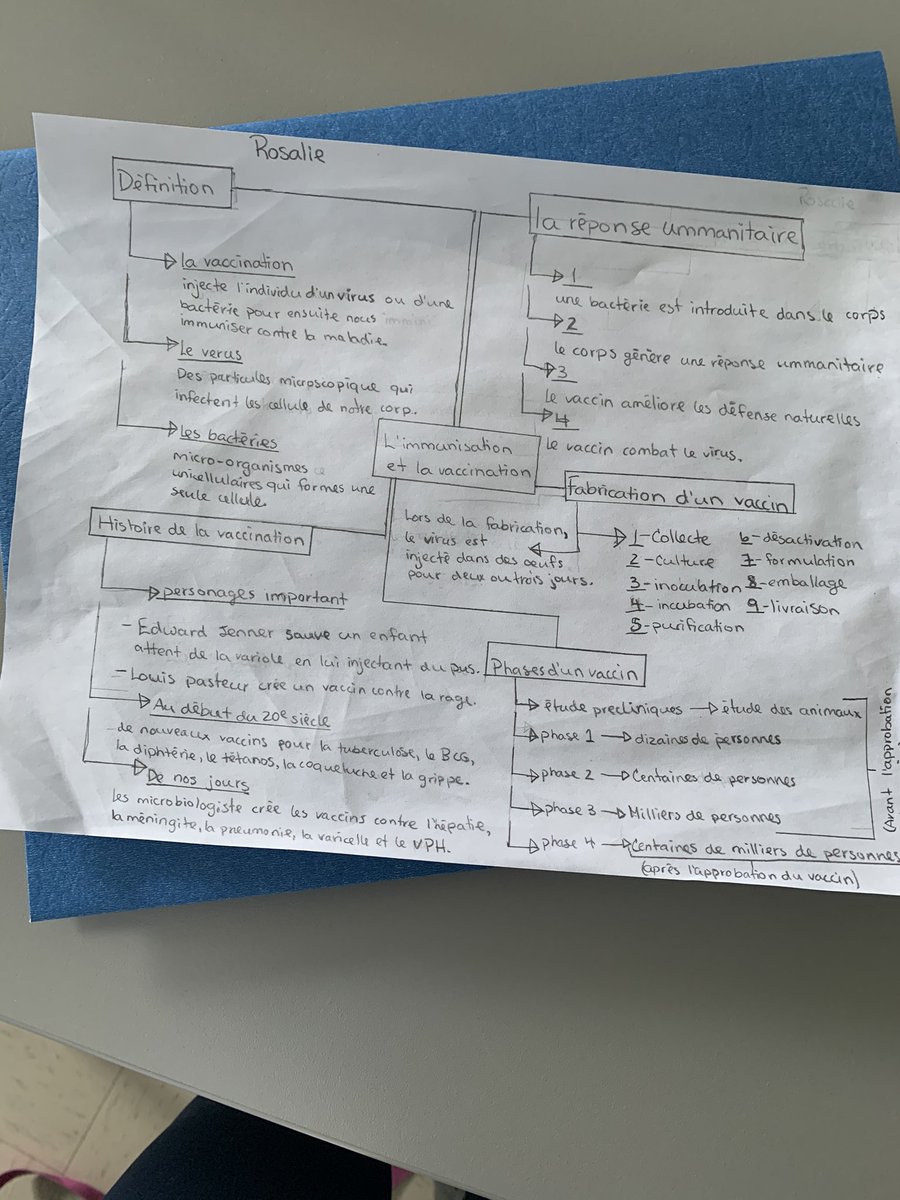 Rosalie
Rosalie
Définition
la vaccination
injecte l'individu d'un virus ou d'une
bactérie pour ensuite nous
immuniser contre la maladie.
Le verus
Des particules micropscopique qui
infectent les cellule de notre corp.
Les bactéries
micro-organismes
unicellulaires qui formes une
seule cellule.
la réponse ummanitaire
1
une bactérie est introduite dans le corps
2
le corps génère une réponse ummanitaire
3
le vaccin améliore les défense naturelles
4
le vaccin combat le virus.
L'immunisation
et la vaccination
fabrication d'un vaccin
1-Collecte
2-culture
3-inoculation
4-incubation
5-purification
6-désactivation
7-formulation
8-emballage
9-livraison
Lors de la fabrication,
le virus est
injecté dans des oeufs
pour deux ou trois jours.
Histoire de la vaccination
personages important
- Edward Jenner sauve un enfant
attent de la variole en lui injectant du pus.
- Louis pasteur crée un vaccin contre la rage.
Au début du 20e siècle
de nouveaux vaccins pour la tuberculose, le BCG,
la diphtérie, le tétanos, la coqueluche et la grippe.
De nos jours
les microbiologiste crée les vaccins contre l'hépatie,
la méningite, la pneumonie, la varicelle et le VPH.
Phases d'un vaccin
étude precliniques étude des animaux
phase 1 dizaines de personnes
phase 2 Centaines de personnes
phase 3 Milliers de personnes
phase 4 Centaines de milliers de personnes
(après l'approbation du vaccin)
(Avant l'approbation